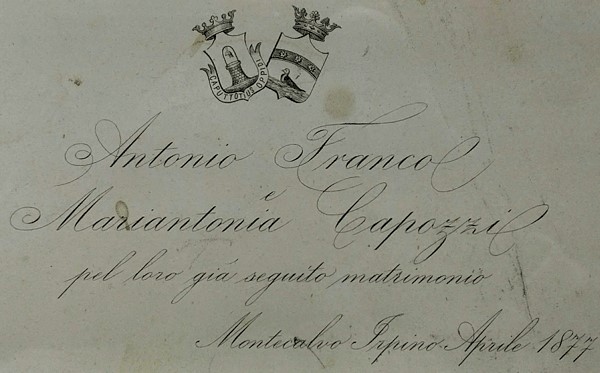 Antonio Franco
e
Mariantonia Capozzi
pel loro già seguito matrimonio
Montecalvo Irpino Aprile 1877